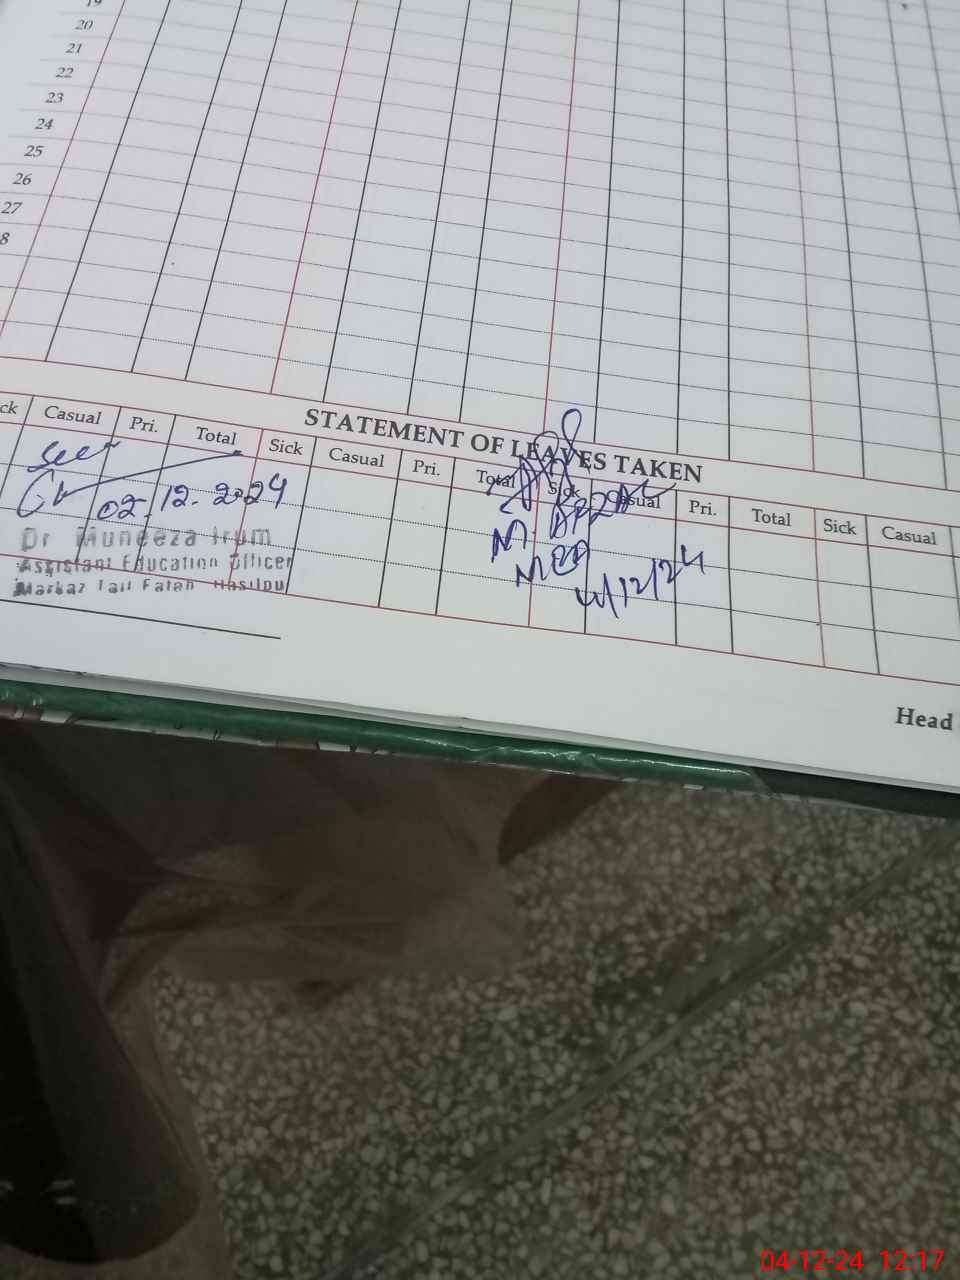 19
20
21
22
23
24
25
26
27
8
STATEMENT OF LEAVES TAKEN
ck Casual Pri. Total Sick Casual Pri. Total Sick Casual Pri. Total Sick Casual
Seen
02.12.2024
Dr Muneeza Irum
Assistant Education Officer
Markaz Tail Fatah Hasilpu
M.
MEA
4/12/24
Head
04-12-24 12:17